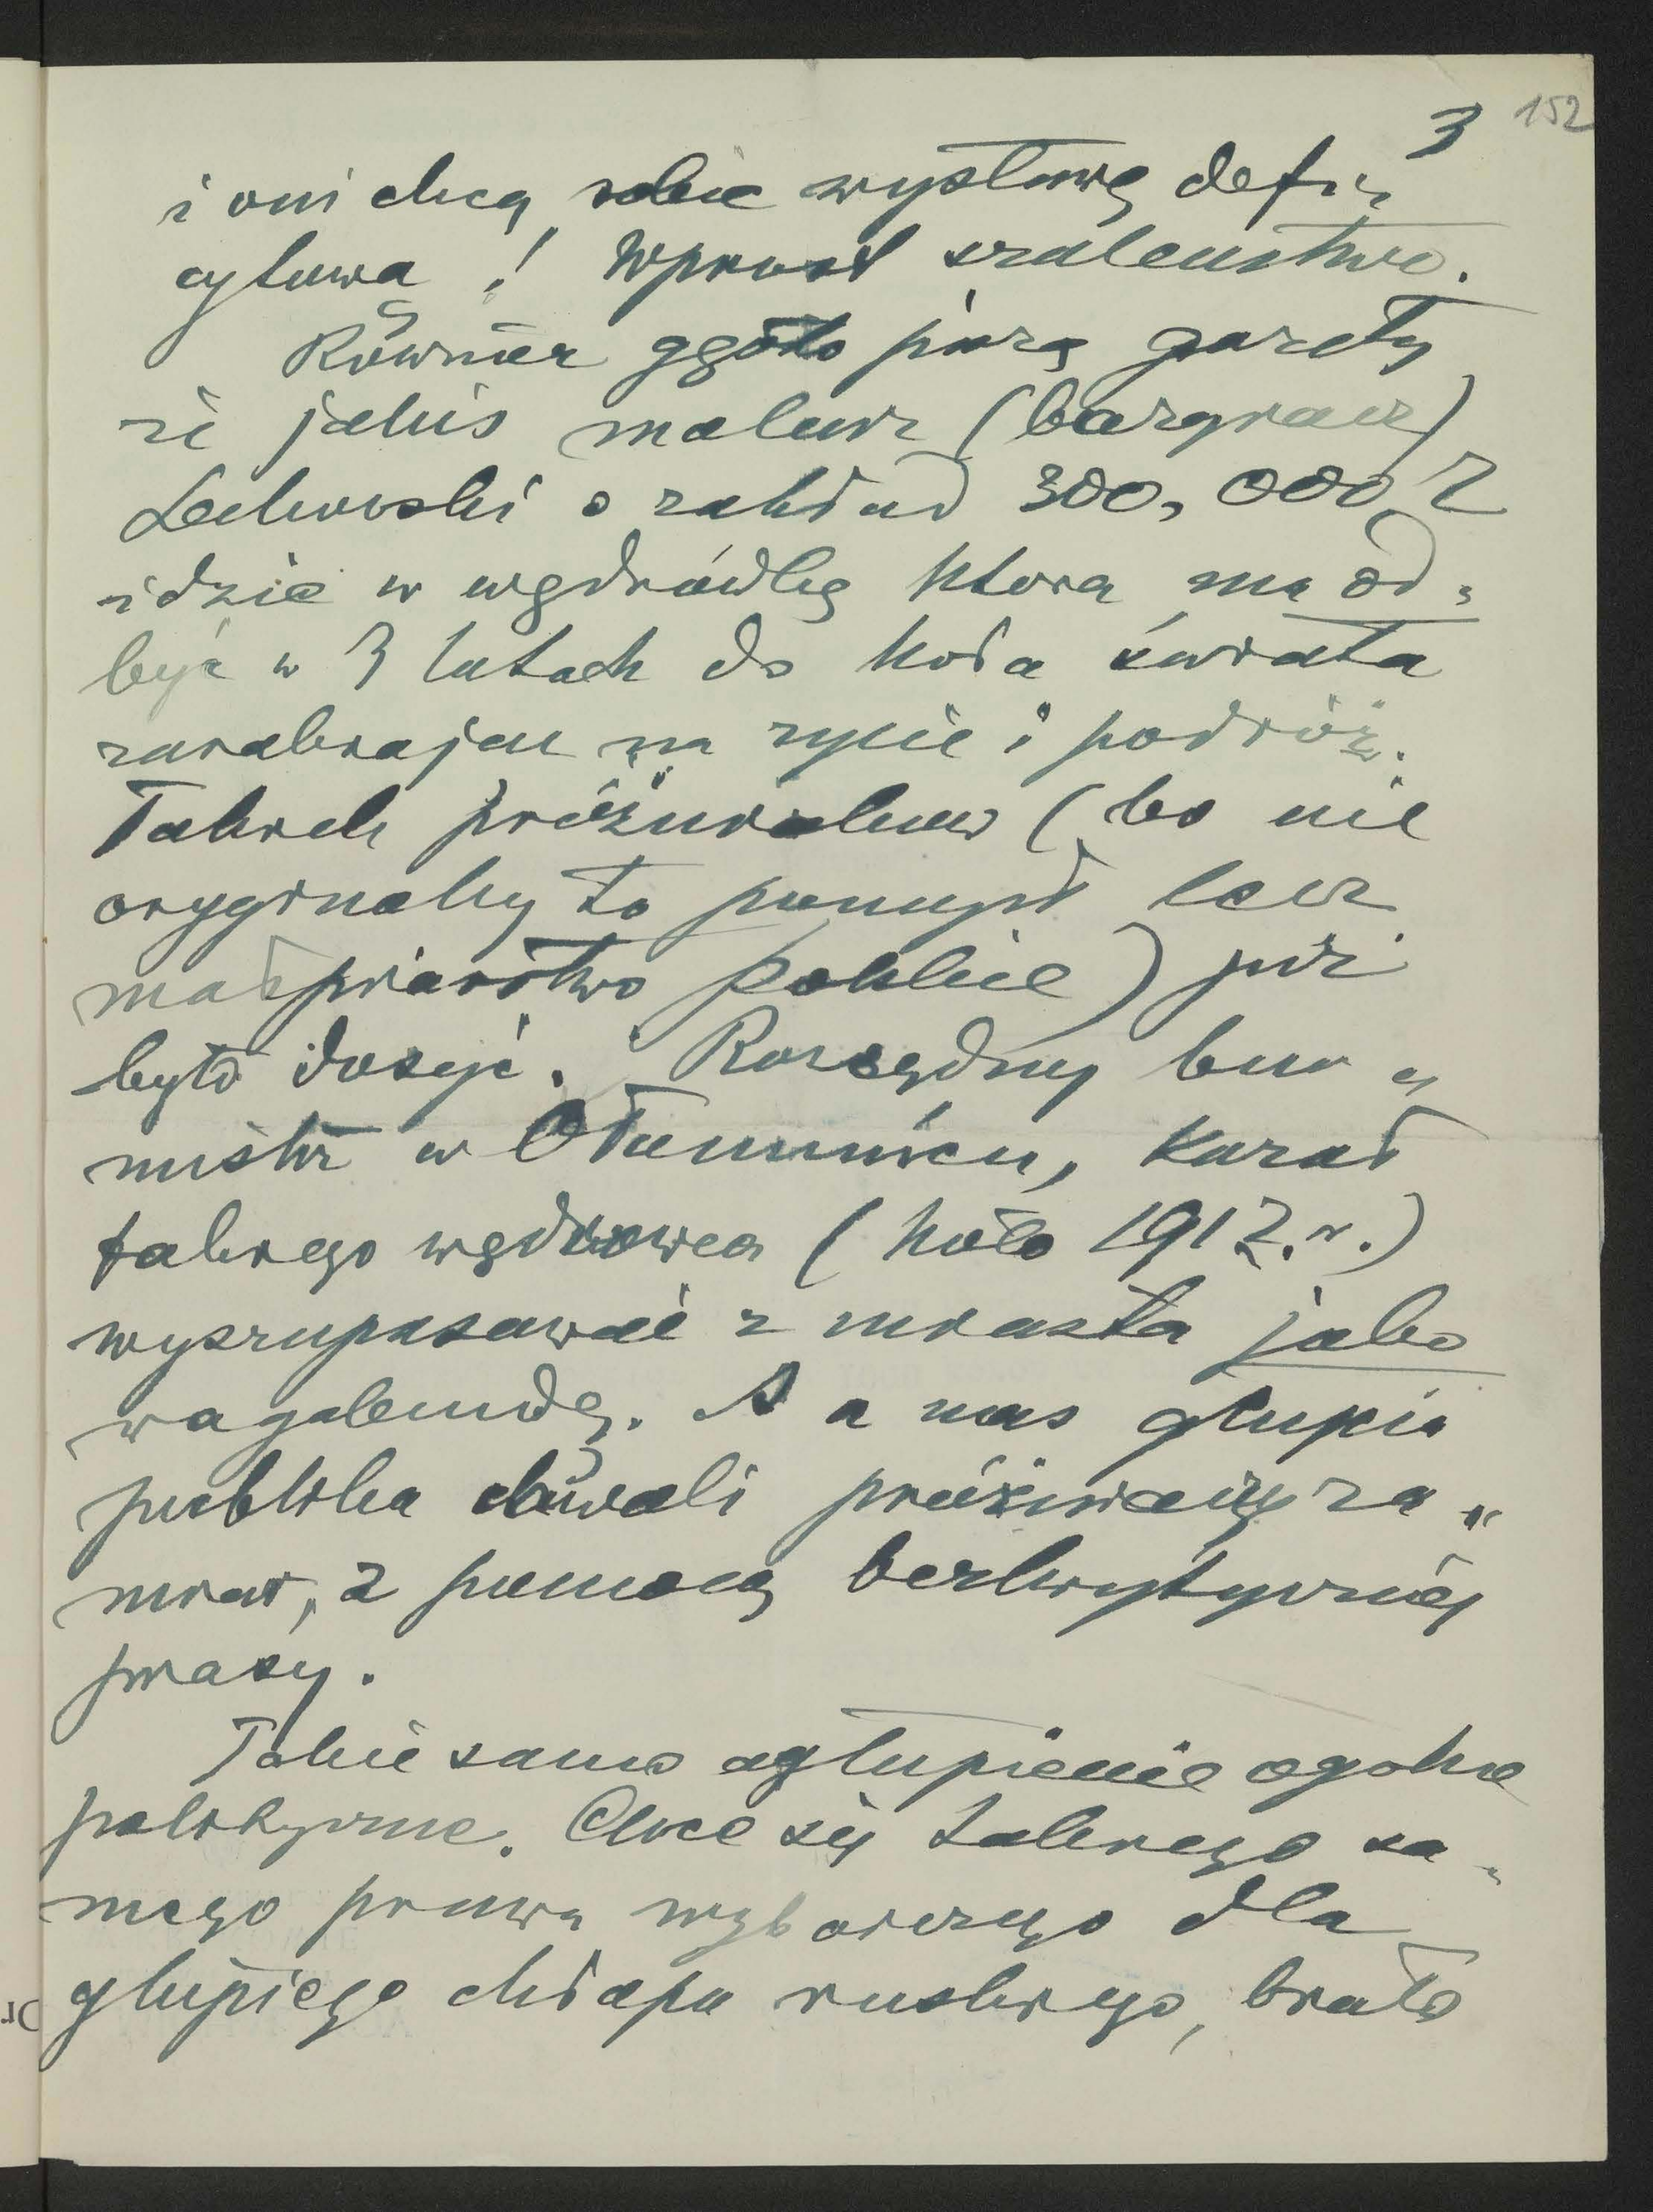 3 152
i oni chcą robić wystawę defi„
cytową! Wprost szaleństwo.
Również głośno piszą gazety
że jakiś malarz (bazgracz)
Lechowski o zakład 300,000 Z
idzie w wędrówkę ktora ma od„
być w 3 latach do koła świata
zarabiając na życie i podróż.
Takich próżniaków (bo nie
oryginalny to pomysł lecz
małpiarstwo polskie) już
było dosyć. Rozsądny bur„
mistrz w Ołomuńcu, kazał
takiego wędrowca (koło 1912.r.)
wyszupasować z miasta jako
wagabundę. A u nas głupia
publika chwali próżniaczy za„
miar, z pomocą bezkrytycznej
prasy.
Takie samo ogłupienie ogolne
polityczne. Chce się takiego sa„
mego prawa wyborczego dla
głupiego chłopa ruskiego, brało